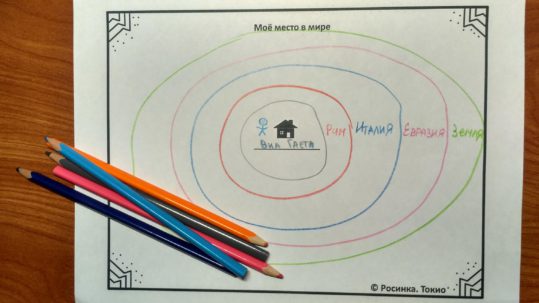 Моё место в мире
Виа Гаета
Рим
Италия
Евразия
Земля
© Росинка. Токио